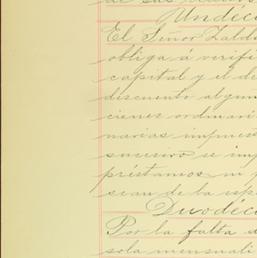 Undéci
El Señor Zaldu
obliga á verifi
capital y el de
descuento algun
ciones ordinari
narias impues
sucesivo se imp
préstamos, ni p
sean de la esp
Duodéci
Por la falta d
sola mensuali